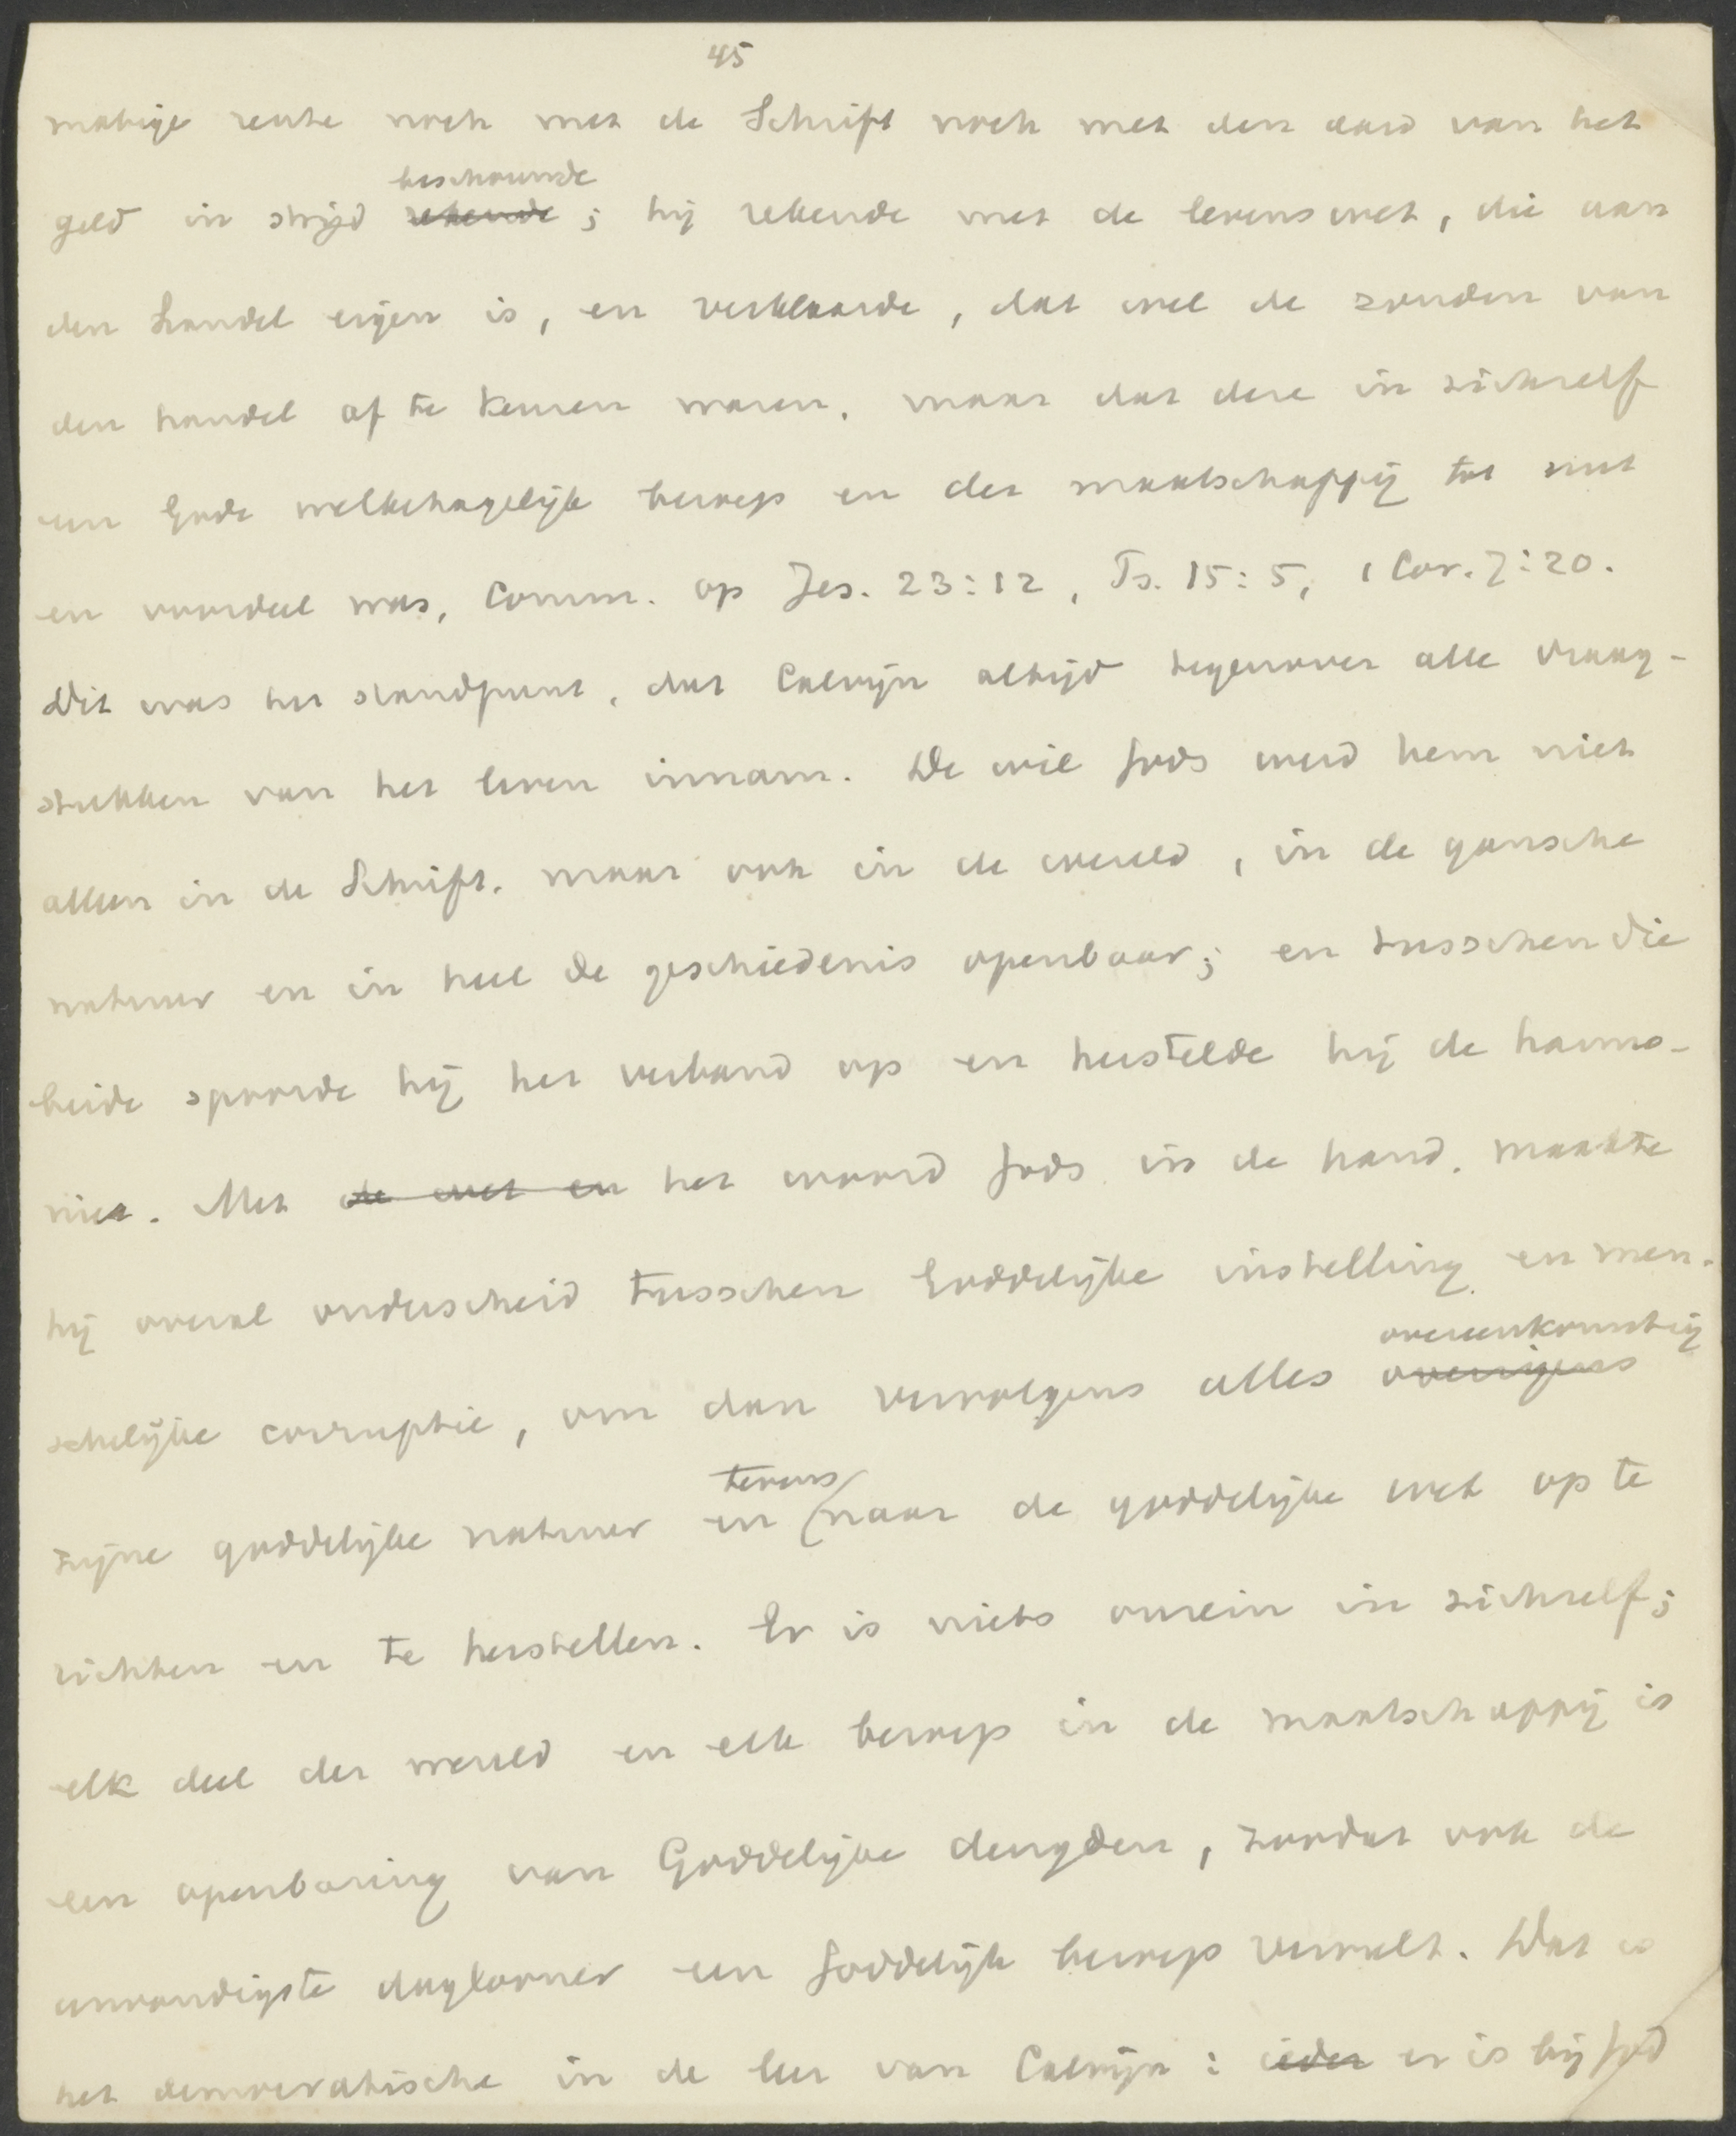 45
matige rente noch met de Schrift noch met den aard van het
beschouwde
geld in strijd rekende ; hij rekende met de levenswet, die aan
den handel eigen is, en verklaarde, dat wel de zonden van
den handel af te keuren waren, maar dat deze in zichzelf
een Gode welbehagelijk beroep en der maatschappij tot nut
en voordeel was, Comm. op Jes. 23:12, Ps. 15:5, 1 Cor. 7:20.
Dit was het standpunt, dat Calvijn altijd tegenover alle vraag-
stukken van het leven innam. De wil Gods werd hem niet
alleen in de Schrift, maar ook in de wereld, in de gansche
natuur en in heel de geschiedenis openbaar; en tusschen die
beide spoorde hij het verband op en herstelde hij de harmo-
nie. Met de wet en het woord Gods in de hand, maakte
hij overal onderscheid tusschen Goddelijke instelling en men-
overeenkomstig
schelijke corruptie, om dan vervolgens alles overigens
tevens
zijne goddelijke natuur en naar de goddelijke wet op te
richten en te herstellen. Er is niets onrein in zichzelf;
elk deel der wereld en elk beroep in de maatschappij is
een openbaring van Goddelijke deugden, zoodat ook de
eenvoudigste daglooner een Goddelijk beroep vervult. Dat is
het democratische in de leer van Calvijn : ieder er is bij God